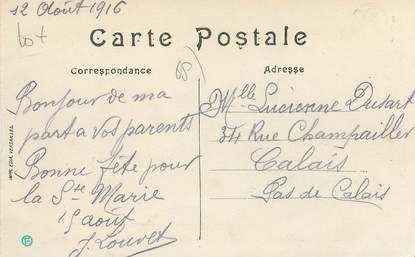 12 Août 1916
lot
Carte Postale
Correspondance
Adresse
Bonjour de ma
part a vos parents
Bonne fête pour
la Ste Marie
15 août
J. Louvet
Mlle Lucienne Dusart
34 Rue Champailler
Calais
Pas de Calais